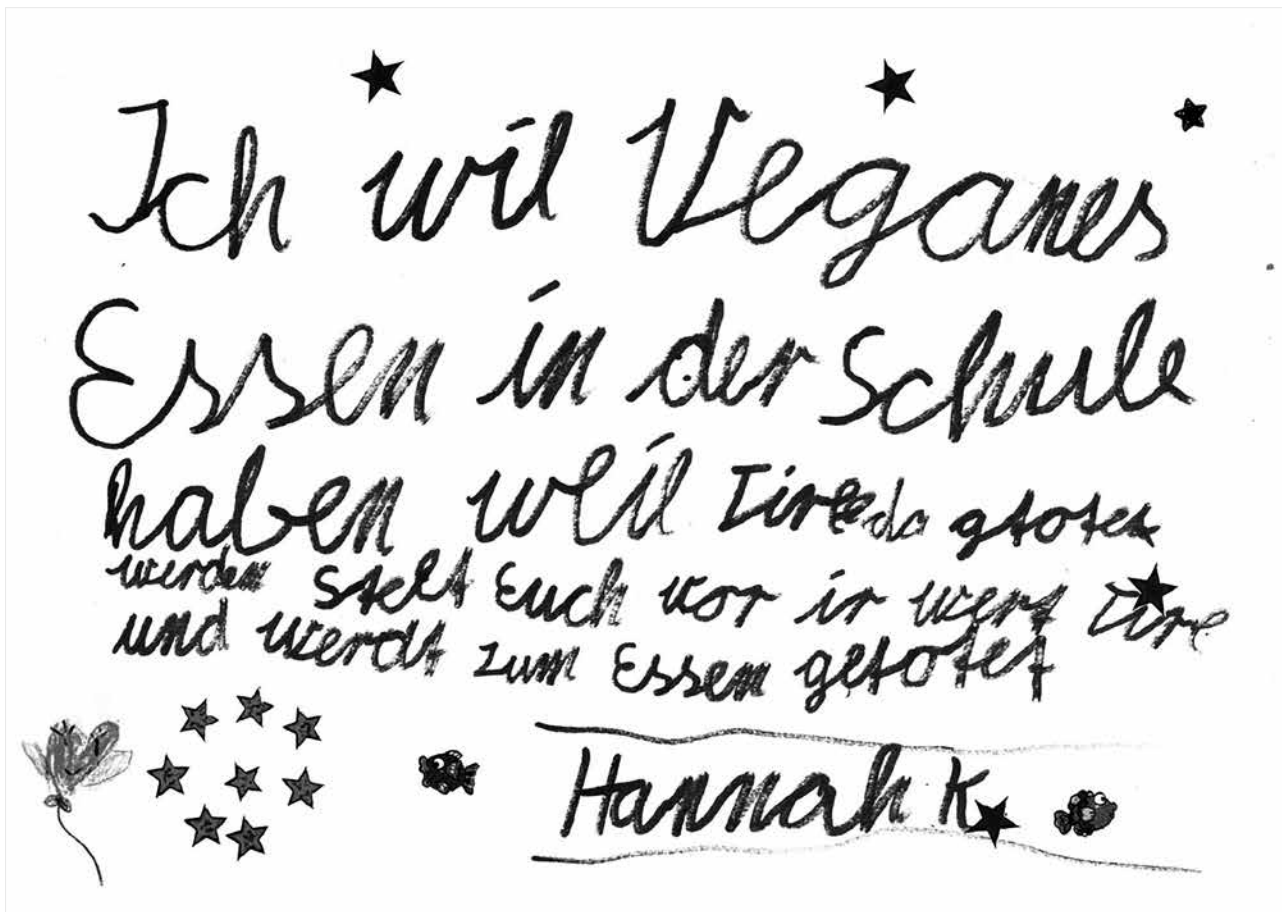 Ich wil Veganes
Essen in der Schule
haben weil Tire da getotet
werden stellt Euch vor ir wert Tire
und werdt zum Essen getotet
Hannah K